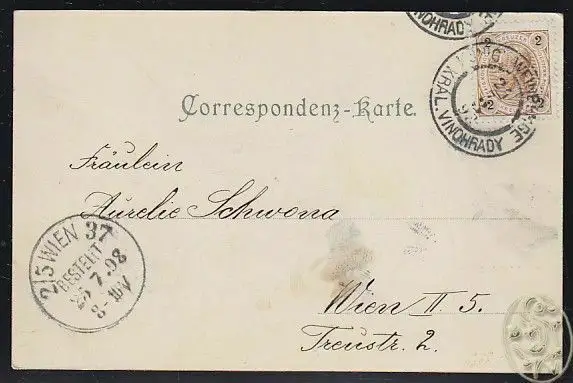 VINOHRADY
2 2
KÖNIGL. WEINBERGE
KRÁL. VINOHRADY
Correspondenz-Karte.
Fräulein
Aurelie Schwona
2/5 WIEN 37
BESTELLT
25.7.98
Wien II 5.
Treustr. 2.